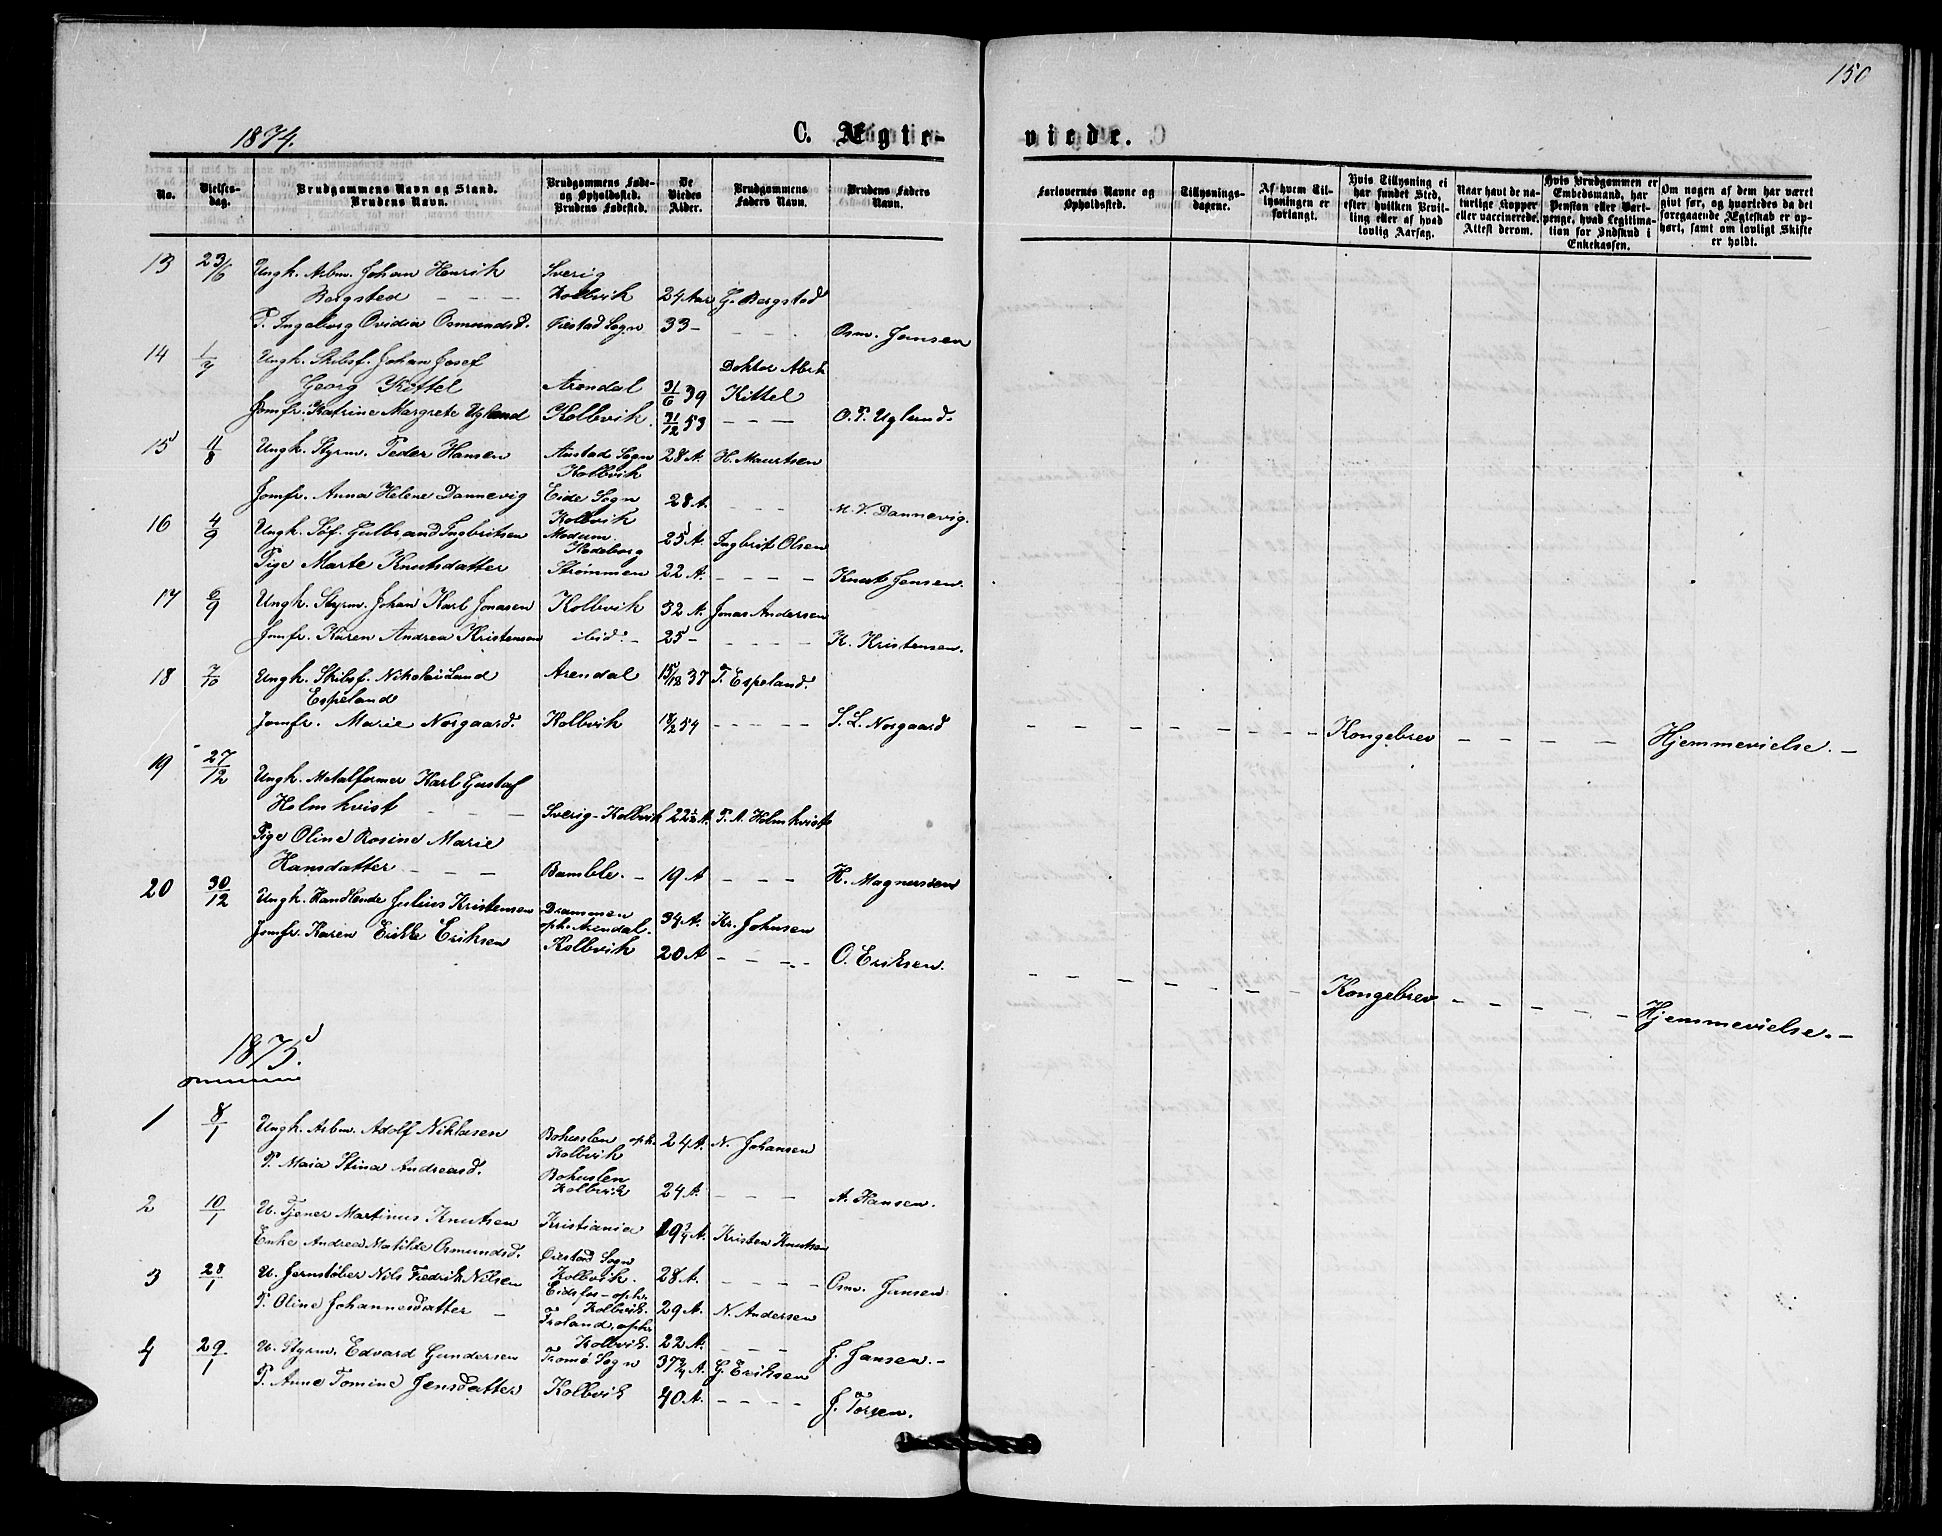 150
1874.
C. Ægte-
viede.
No.
Vielses-
dag.
Brudgommens Navn og Stand.
Brudens Navn.
Brudgommens Føde-
og Opholdssted.
Brudens Fødested.
De
Viedes
Alder.
Brudgommens
Faders Navn.
Brudens Faders
Navn.
Forlovernes Navne og
Opholdssted.
Tillysnings-
dagene.
Af hvem Til-
lysningen er
forlangt.
Hvis Tillysning ei
har fundet Sted,
efter hvilken Bevil-
ling eller af hvad
lovlig Aarsag.
Naar havt de na-
turlige Kopper
eller vaccinerede.
Attest derom.
Hvis Brudgommen er
Embedsmand, har
Pension eller Vart-
penge, hvad Legitima-
tion for Indskud i
Enkekassen.
Om nogen af dem har været
givt før, og hvorledes da det
foregaaende Ægteskab er op-
hørt, samt om lovligt Skifte
er holdt.
13 23/6 Ungk. Arbm. Johan Henrik Sverig
Bergsted - - - Kolbvik 24 Aar G. Bergsted
P. Ingeborg Ovidia Osmundsd. Øiestad Sogn 33 - - - - Osm. Jensen
14 1/7 Ungk. Skibsf. Johan Josef Doktor Abrh
Georg Kittel Arendal 31/6 39 Kittel
Jomfr. Katrine Margrete Ugland Kolbvik. 31/12 53 - - - O. T. Uglund.
15 11/8 Ungk. Styrm. Peder Hansen Austad Sogn 28 A. H. Maurtsen
Kolbvik
Jomfr. Anna Helene Dannevig Eide Sogn 28 A. - - - M. V. Dannevig.
Kolbvik
16 4/9 Ungk. Søf. Gulbrand Ingbritsen Modum 25 A. Ingbrit Olsen
Kodeborg
Pige Marte Knutsdatter Strømmen 22 A. - - - - Knut Jensen.
17 6/9 Ungk. Styrm. Johan Karl Jonasen Kolbvik 32 A. Jonas Andersen
Jomfr. Karen Andrea Kristensen ibid. - 25 - - - - - K. Kristensen.
18 7/10 Ungk. Skibsf. Nikolai Lund Arendal 15/12 37 T. Espeland.
Espeland
Jomfr. Marie Norgaard. Kolbvik 18/2 54 - - - - - S. L. Norgaard - - - - - - Kongebrev - - - Hjemmevielse. -
19 27/12 Ungk. Metalformer Karl Gustaf
Holmkvist - - - Sverig - Kolbvik 22½ A. P. A. Holmkvist
Pige Oline Rosine Marie
Hansdatter - - - Bamble. - 19 A - - - H. Magnussen
20 30/12 Ungk. Handlende Julius Kristensen Drammen
oph. Arendal. 34 A. Kr. Johnsen
Jomfr. Karen Erikke Eriksen Kolbvik 20 A - - - - O. Eriksen. - - - - - - Kongebrev - - - - - Hjemmevielse. -
1875.
1 8/1 Ungk. Arbm. Adolf Niklasen Bohuslen oph. 24 A. N. Johansen
Kolbvik
P. Maia Stina Andreasd. Bohuslen
Kolbvik 24 A. - - - A. Hansen.
2 10/1 U. Tjener Martinus Knutsen Kristiania 29¾ A. Kristen Knutsen
Enke Andrea Matilde Osmundsd. Øiestad Sogn
Kolbvik. 28 A. - - - - Osm. Jensen
3 28/1 U. Jernstøber Nils Fredrik Nilsen Eidsfos - oph.
Kolbvik. 29 A. N. Andersen
P. Oline Johannesdatter - Froland, oph.
Kolbvik. 22 A. - - - J. Jansen. -
4 29/1 U. Styrm. Edvard Gundersen Tromø Sogn 37¾ A. G. Eriksen
P. Anne Tomine Jensdatter Kolbvik 40 A. - - - - J. Torsen.